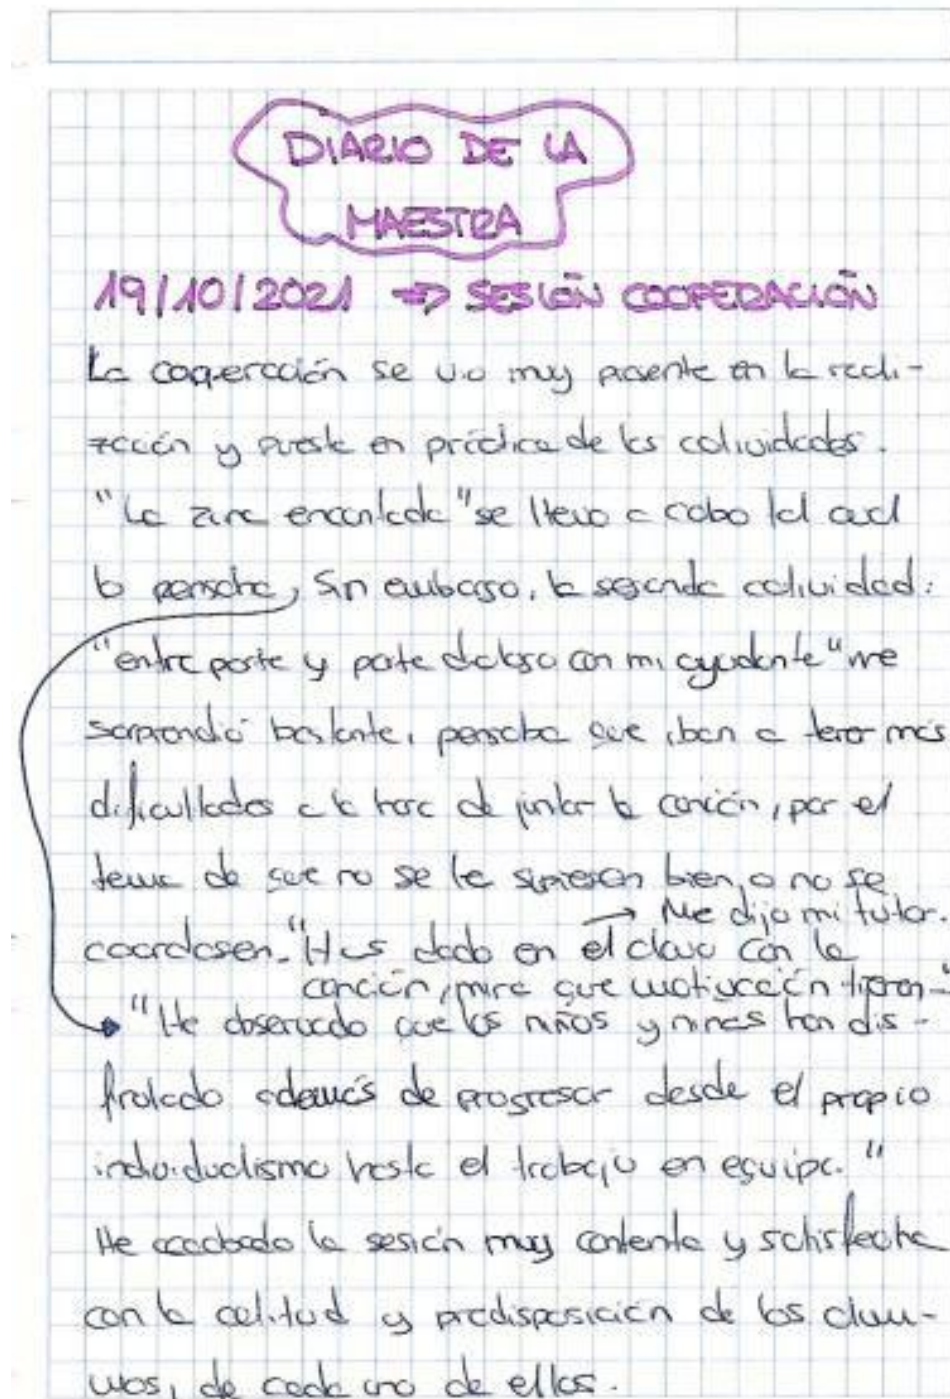 DIARIO DE LA
MAESTRA
19/10/2021 ⇒ SESIÓN COOPERACIÓN
La cooperación se vio muy presente en la reali-
zación y puesta en práctica de las actividades.
"La zina encantada" se llevo a cabo tal cual
lo pensaba, Sin embargo, la segunda actividad:
"entre parte y parte dialogo con mi ayudante" me
sorprendió bastante, pensaba que iban a tener más
dificultades a la hora de juntar la canción, por el
tema de que no se la supiesen bien, o no se
→ Me dijo mi tutor.
coordasen. "Has dado en el clavo con la
canción, mira que motivación tienen-"
"He observado que los niños y niñas han dis-
frutado además de progresar desde el propio
individualismo hasta el trabajo en equipo."
He acabado la sesión muy contenta y satisfecha
con la actitud y predisposición de los alum-
nos, de cada uno de ellos.